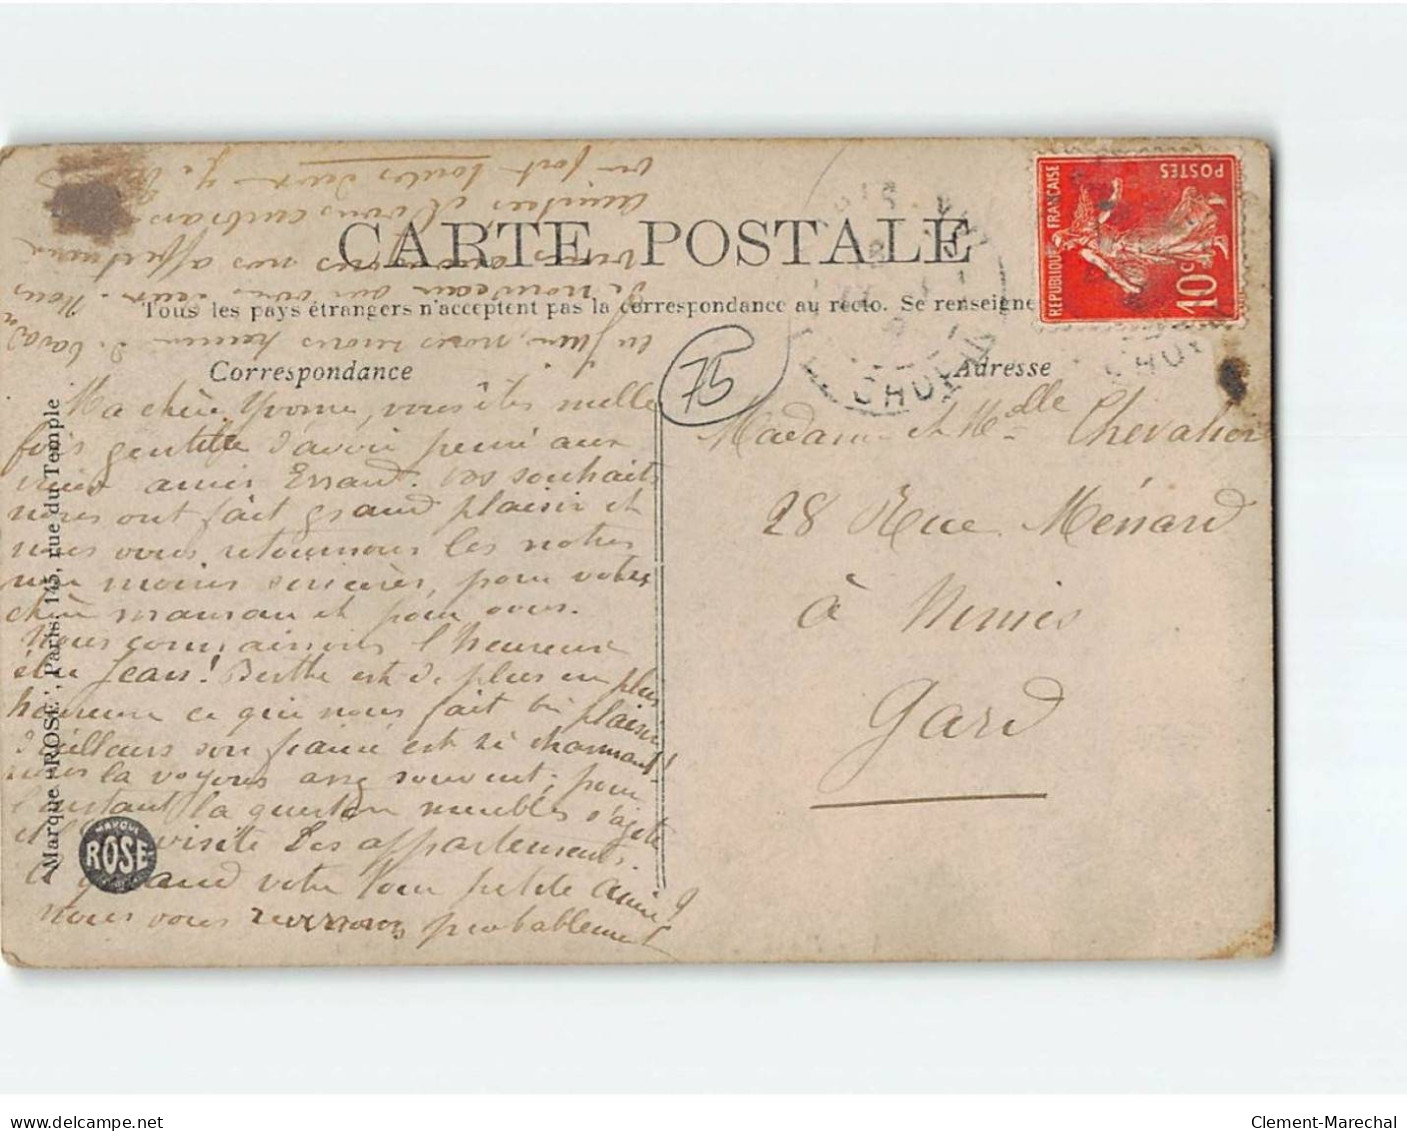 CARTE POSTALE
Tous les pays étrangers n'acceptent pas la correspondance au recto. Se renseigne
Correspondance
Adresse
75
REPUBLIQUE FRANÇAISE
POSTES
10c
CHOISY
Ma chère Yvonne, vous êtes mille
fois gentille d'avoir pensé aux
vieux amis Errard. Vos souhaits
nous ont fait grand plaisir et
nous vous retournons les notres
non moins sincères, pour votre
chère maman et pour vous.
Nous connaissons l'heureux
élu Jean! Berthe est de plus en plus
heureuse ce qui nous fait bien plaisir
d'ailleurs son fiancé est si charmant!
nous la voyons assez souvent; pour
l'instant la question meubles s'agite
et la visite des appartements.
à quand votre tour petite amie?
nous vous reverrons probablement
en Juin, nous nous
de nouveau sur vous deux. Nous
vous envoyons nos affectueuses
amitiés et vous embrassons
fort toutes deux
Madame et Melle Chevalier
28 Rue Ménard
à Nimes
Gard
Marque "ROSE", Paris, 145, rue du Temple
MARQUE
ROSE
delcampe.net
Clement-Marechal